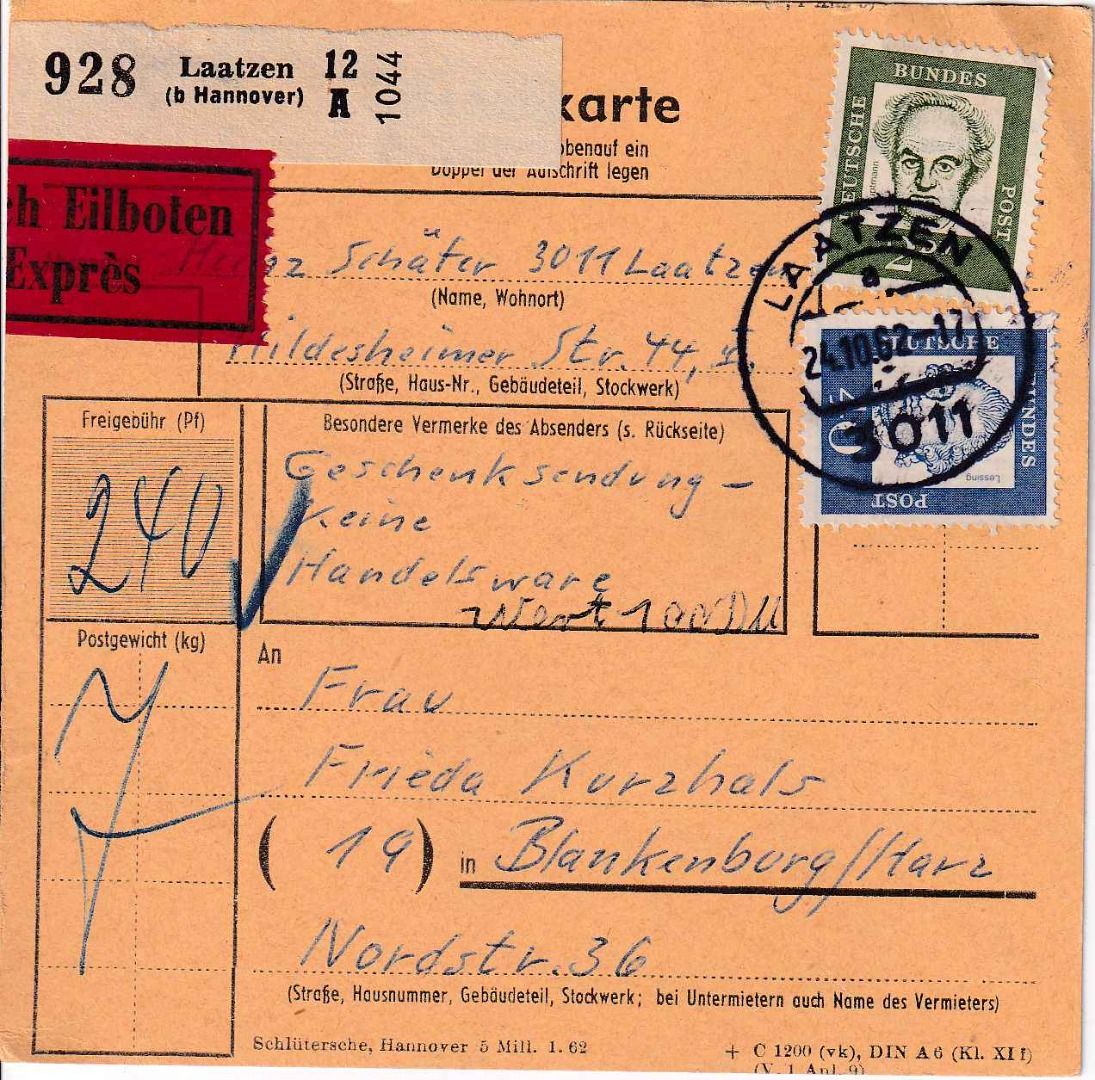 928 Laatzen 12
(b Hannover) A 1044
karte
obenauf ein
Doppel der Aufschrift legen
ch Eilboten
Exprès
BUNDES
DEUTSCHE
POST
LAATZEN
a
24.10.62-17
3011
DEUTSCHE
BUNDES
POST
Lessing
Heinz Schäfer 3011 Laatzen
(Name, Wohnort)
Hildesheimer Str. 44, I.
(Straße, Haus-Nr., Gebäudeteil, Stockwerk)
Freigebühr (Pf)
240
Besondere Vermerke des Absenders (s. Rückseite)
Geschenksendung –
Keine
Handelsware
Wert 100 DM
Postgewicht (kg)
7
An
Frau
Frieda Kurzhals
(19) in Blankenburg/Harz
Nordstr. 36
(Straße, Hausnummer, Gebäudeteil, Stockwerk; bei Untermietern auch Name des Vermieters)
Schlütersche, Hannover 5 Mill. 1. 62
+ C 1200 (vk), DIN A 6 (Kl. XI f)
(V, 1 Anl. 9)